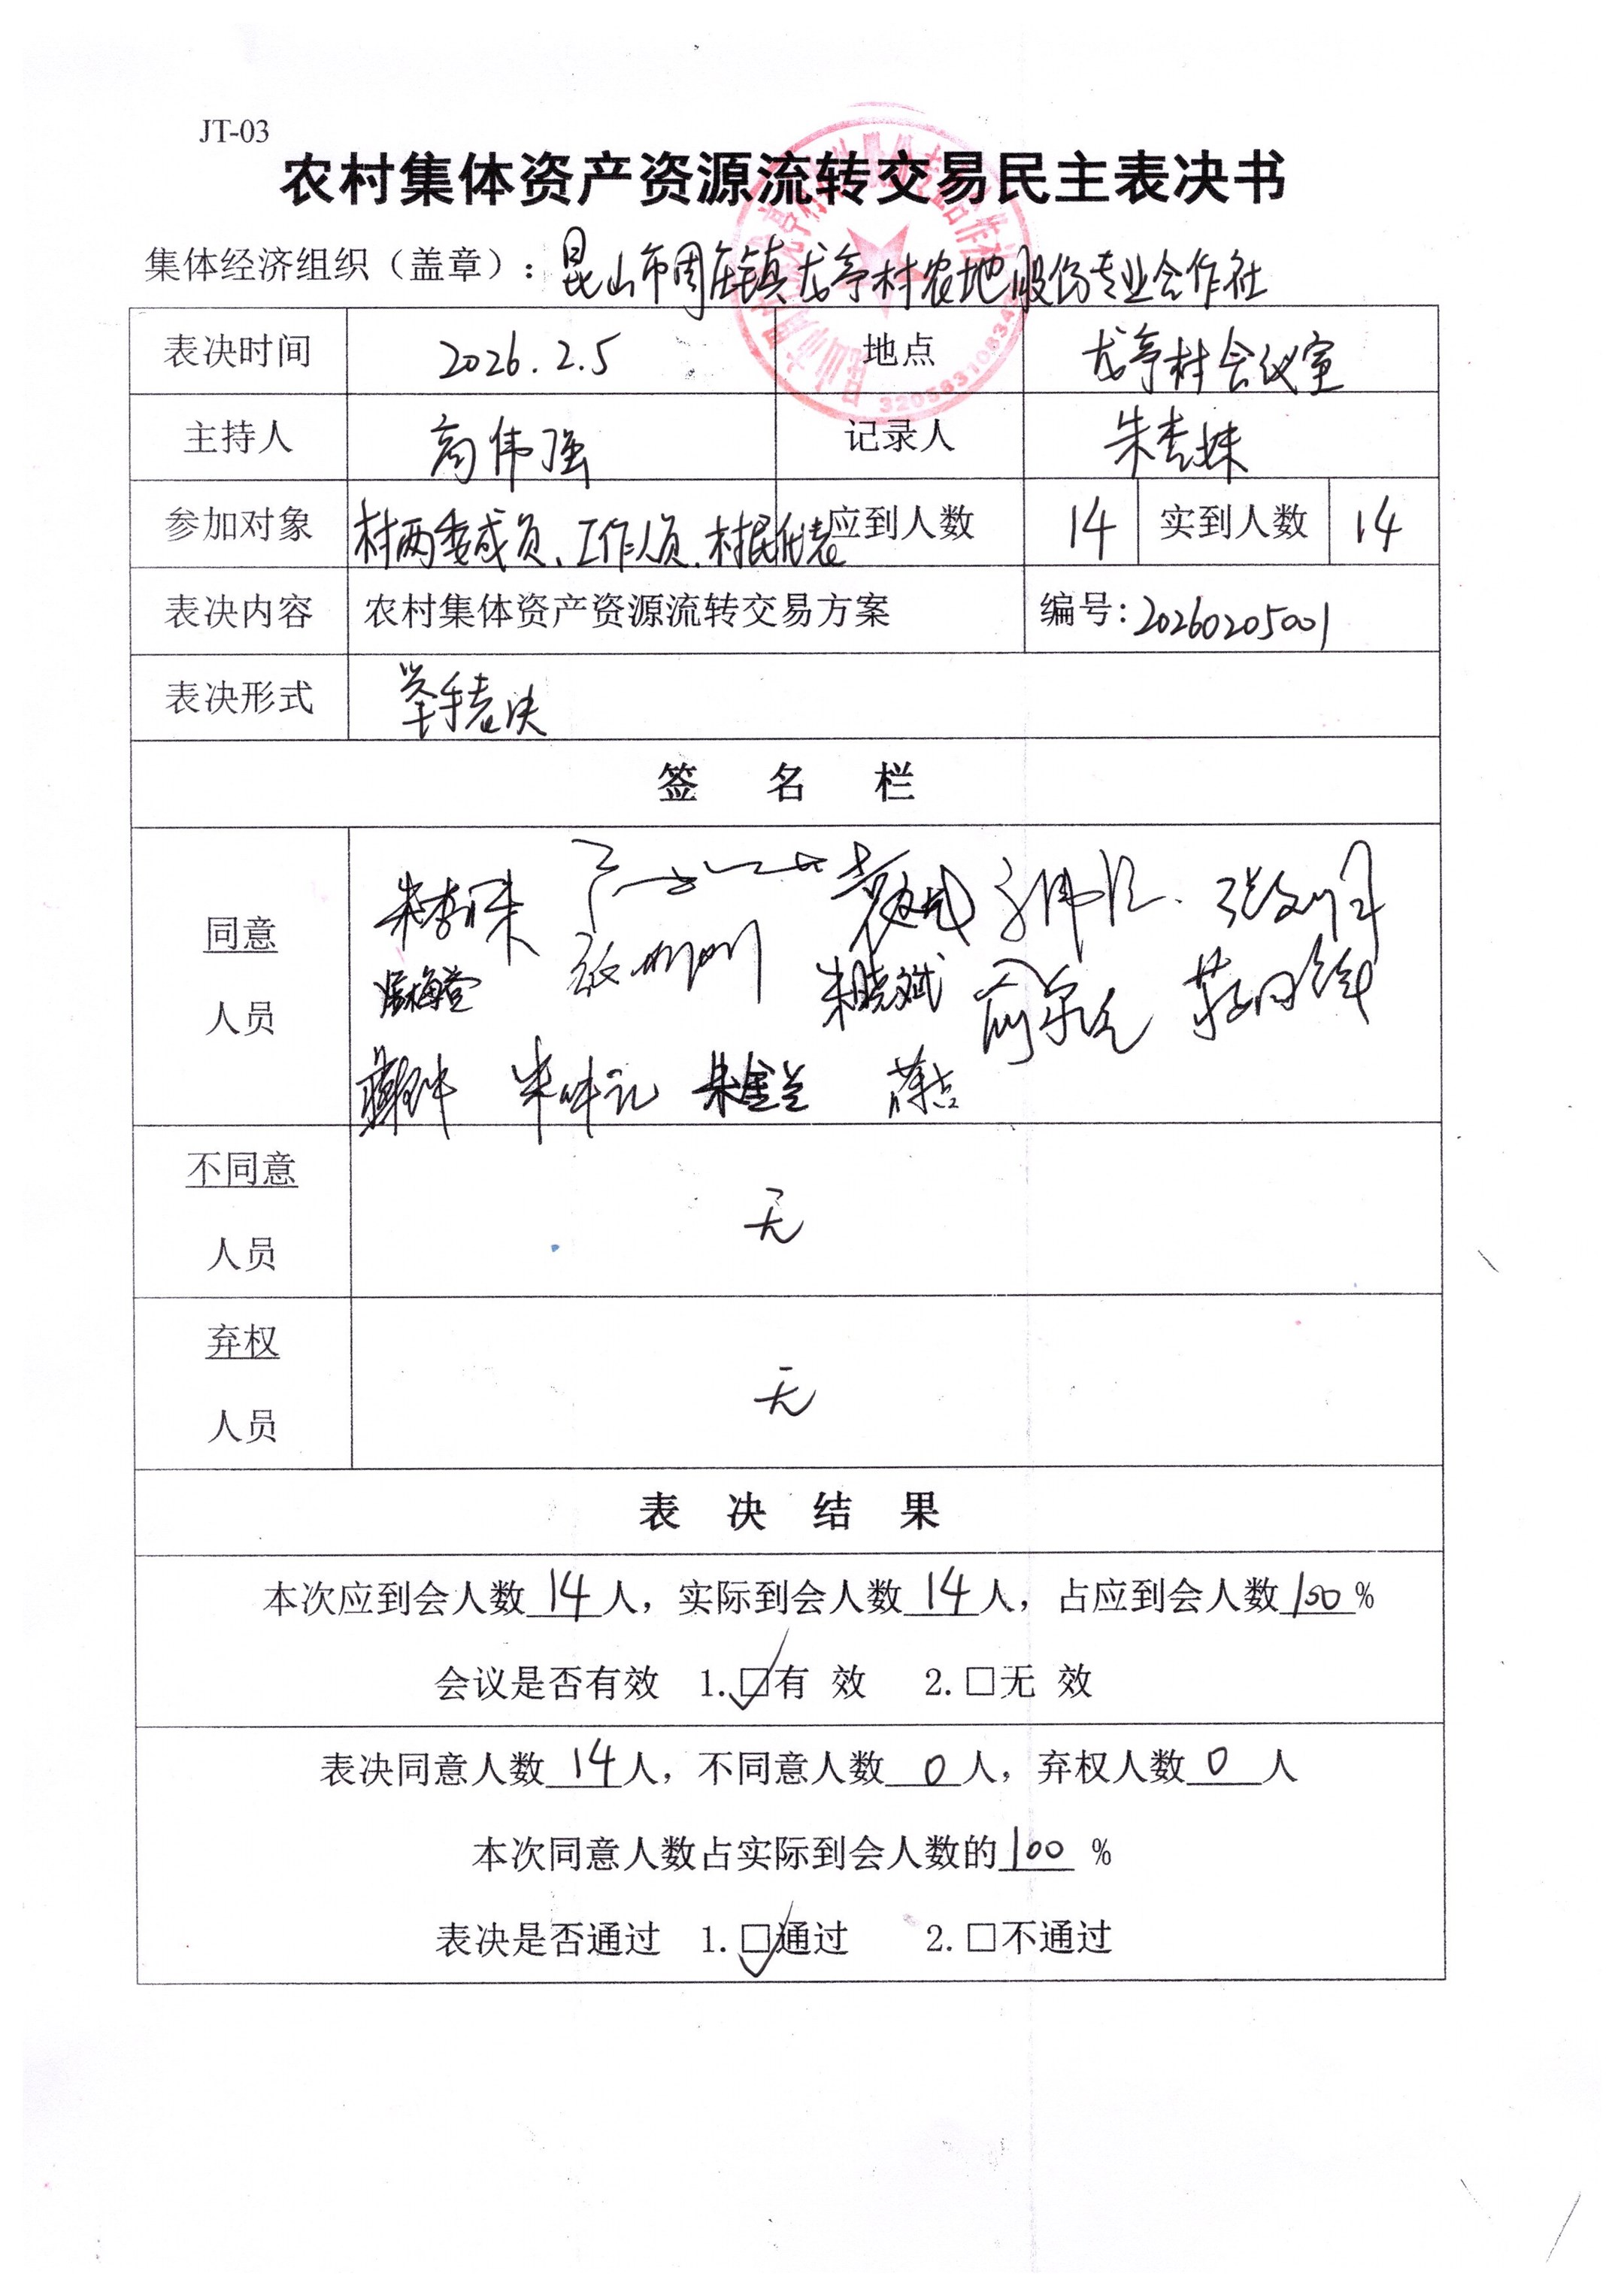 JT-03
农村集体资产资源流转交易民主表决书
集体经济组织（盖章）：昆山市周庄镇龙亭村农地股份专业合作社
表决时间 2026.2.5 地点 龙亭村会议室
主持人 高伟强 记录人 朱杏妹
参加对象 村两委成员、工作人员、村民代表 应到人数 14 实到人数 14
表决内容 农村集体资产资源流转交易方案 编号:20260205001
表决形式 举手表决
签 名 栏
同意
人员
朱晓斌
朱金兰
不同意
人员
无
弃权
人员
无
表 决 结 果
本次应到会人数14人，实际到会人数14人，占应到会人数100%
会议是否有效 1.☑有 效 2.□无 效
表决同意人数14人，不同意人数0人，弃权人数0人
本次同意人数占实际到会人数的100 %
表决是否通过 1.☑通过 2.□不通过